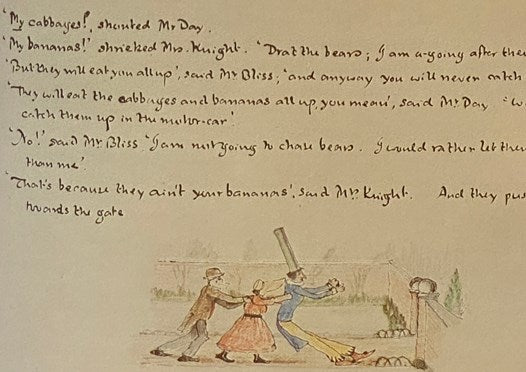 'My cabbages!', shouted Mr Day.
'My bananas!' shrieked Mrs. Knight. 'Drat the bears; I am a-going after
'But they will eat you all up', said Mr Bliss, 'and anyway you will never catch
'They will eat the cabbages and bananas all up, you mean', said Mr. Day
catch them up in the motor-car'.
'No!' said Mr. Bliss 'I am not going to chase bears. I would rather let
than me'.
'That's because they ain't your bananas', said Mrs. Knight. And they
towards the gate